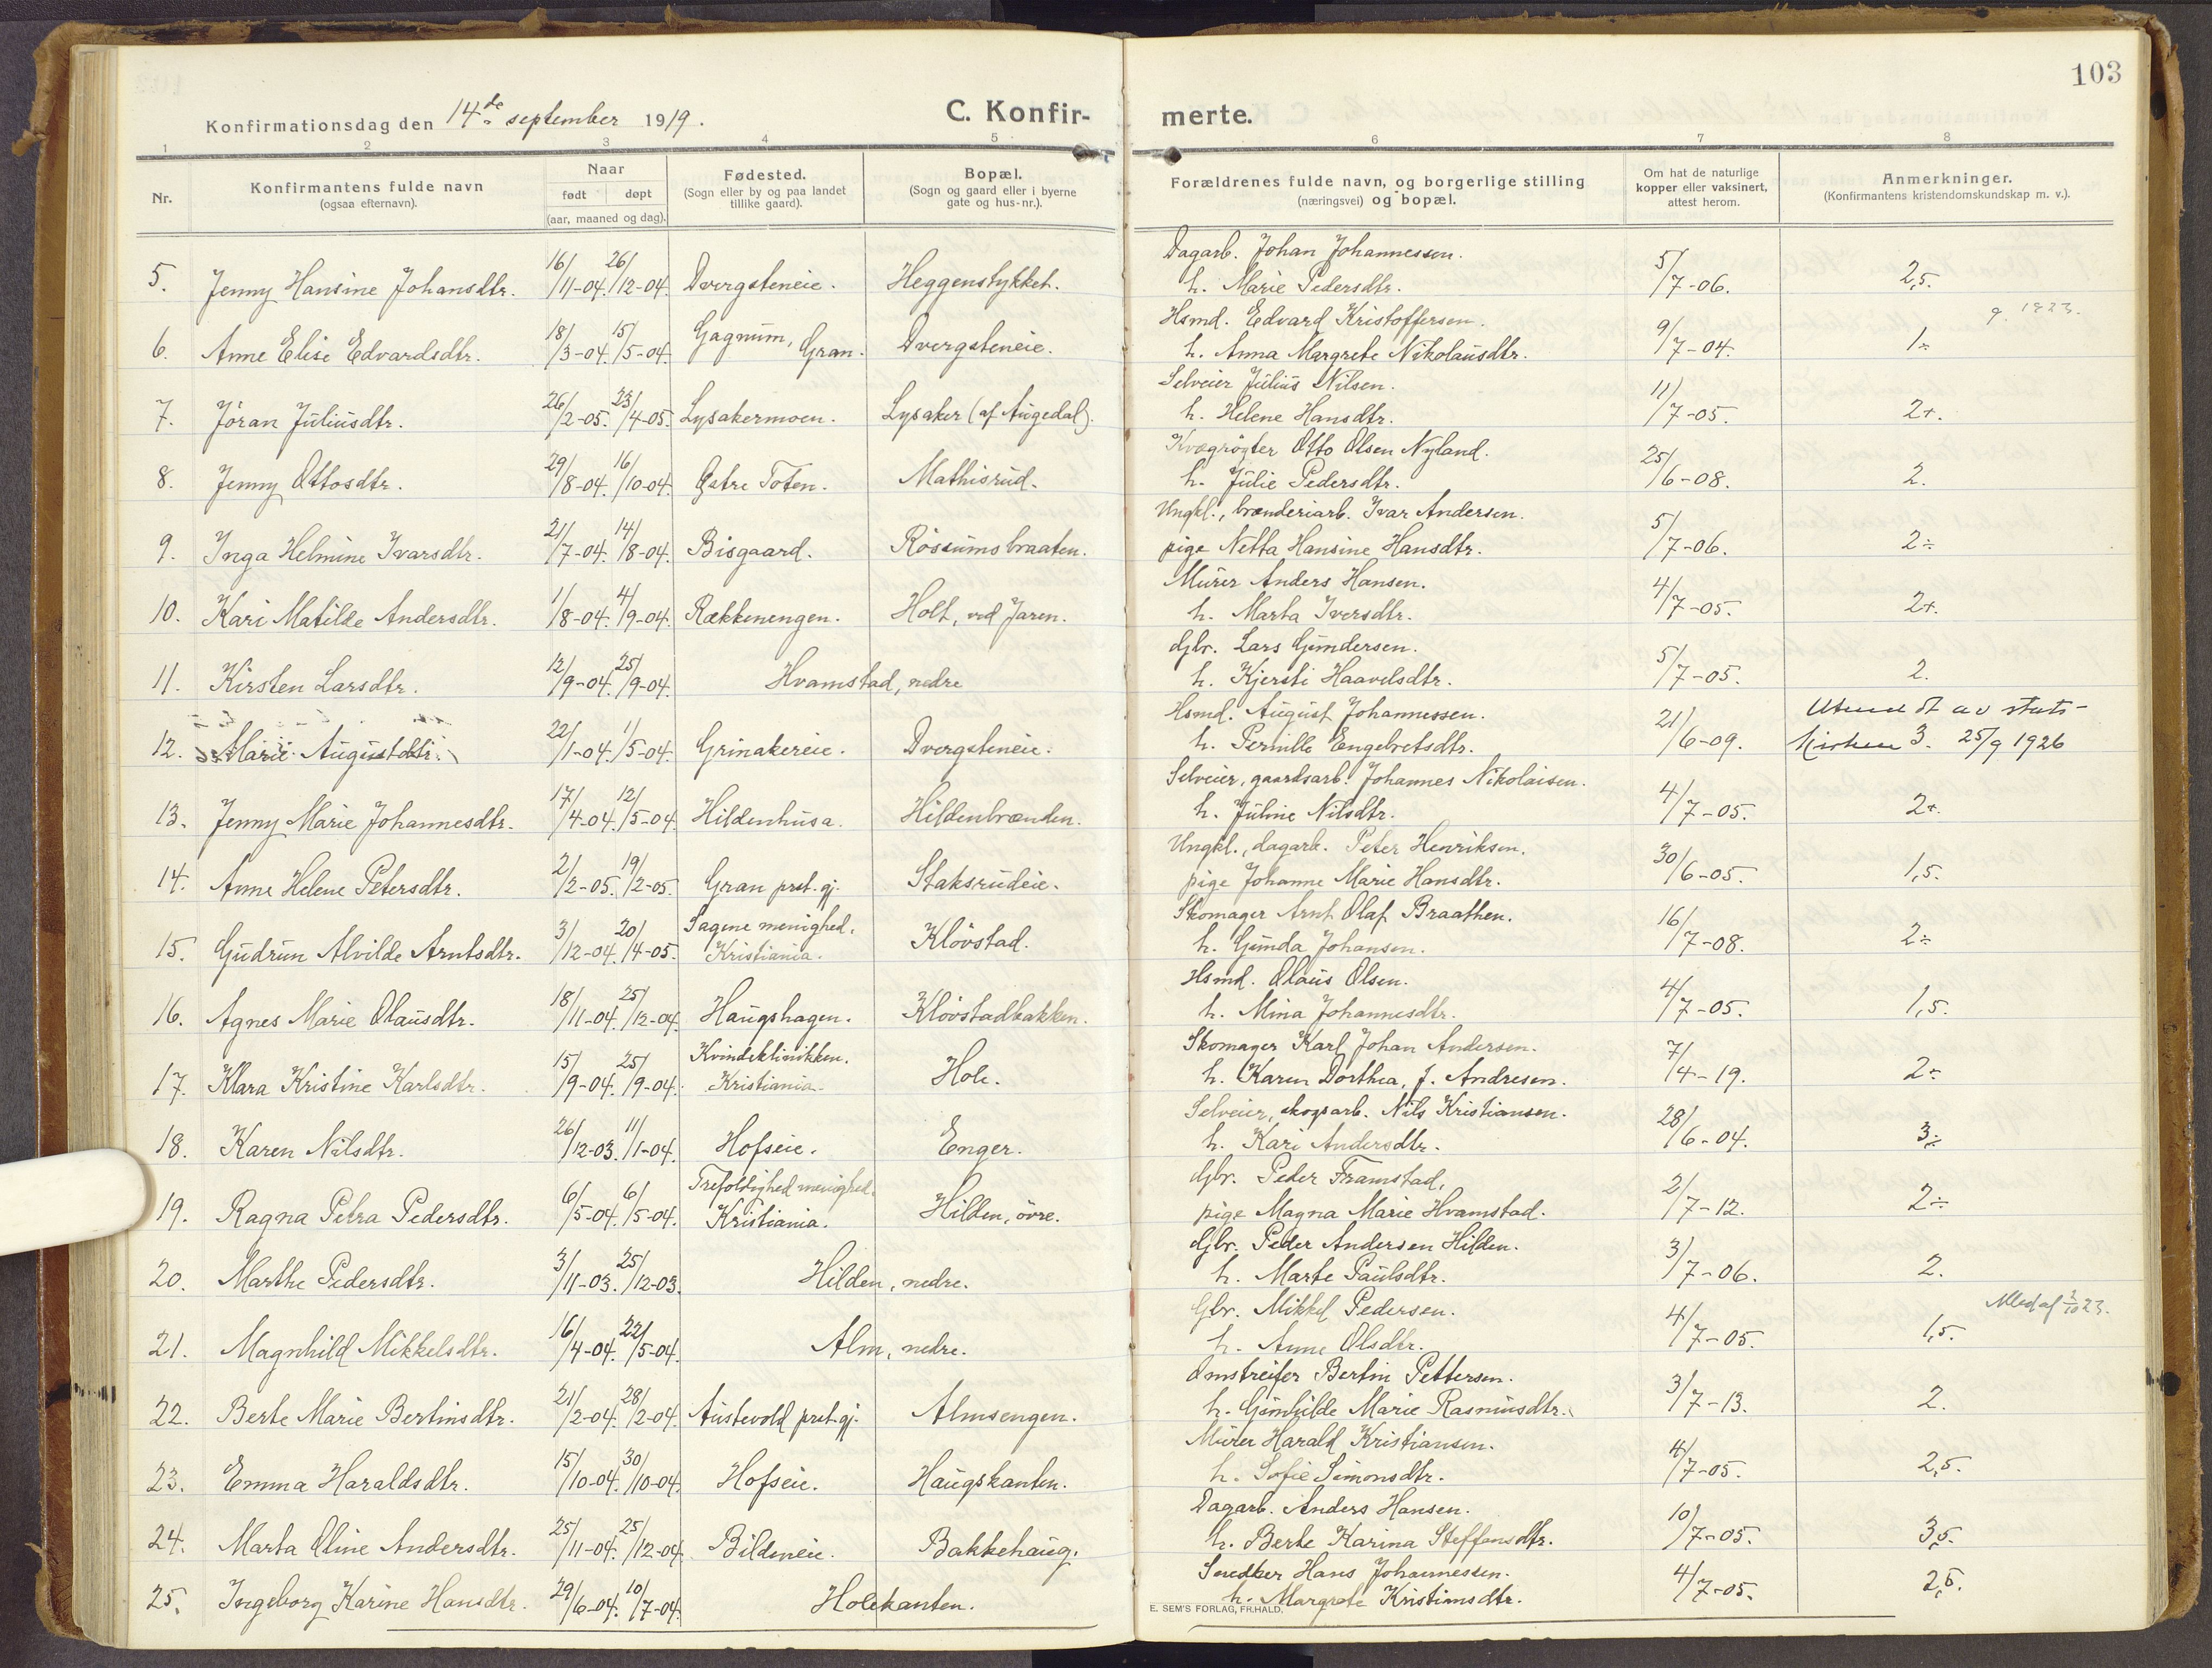 103
Konfirmationsdag den 14de september 1919.
C. Konfir-
merte.
1 2 3 4 5 6 7 8
Nr.
Konfirmantens fulde navn
(ogsaa efternavn).
Naar
født døpt
(aar, maaned og dag).
Fødested.
(Sogn eller by og paa landet
tillike gaard).
Bopæl.
(Sogn og gaard eller i byerne
gate og hus-nr.).
Forældrenes fulde navn, og borgerlige stilling
(næringsvei) og bopæl.
Om hat de naturlige
kopper eller vaksinert,
attest herom.
Anmerkninger.
(Konfirmantens kristendomskundskap m. v.).
Dagarb. Johan Johannessen.
5. Jenny Hansine Johansdtr. 16/11-04. 26/12-04. Dvergsteneie. Heggenstykket. h. Marie Pedersdtr. 5/7-06. 2,5.
Hsmd. Edvard Kristoffersen. g. 1923.
6. Anne Elise Edvardsdtr. 18/3-04. 15/5-04. Gagnum, Gran. Dvergsteneie. h. Anna Margrete Nikolausdtr. 9/7-04. 1÷
Selveier Julius Nilsen.
7. Jöran Juliusdtr. 26/2-05. 23/4-05. Lysakermoen. Lysaker (af Augedal). h. Helene Hansdtr. 11/7-05. 2+.
Kvægrögter Otto Olsen Nyland.
8. Jenny Ottosdtr. 29/8-04. 16/10-04. Østre Toten. Mathisrud. h. Julie Pedersdtr. 25/6-08. 2.
Ungkl., brænderiarb. Ivar Andersen.
9. Inga Helmine Ivarsdtr. 21/7-04. 14/8-04. Bisgaard. Rössumsbraaten. pige Netta Hansine Hansdtr. 5/7-06. 2÷
Murer Anders Hansen.
10. Kari Matilde Andersdtr. 1/8-04. 4/9-04. Rækkenengen. Holt, ved Jaren. h. Marta Iversdtr. 4/7-05. 2+.
Gbr. Lars Gundersen.
11. Kirsten Larsdtr. 12/9-04. 25/9-04. Hvamstad, nedre h. Kjersti Haavelsdtr. 5/7-05. 2.
Hsmd. August Johannessen. Utmeldt av stats-
12. Marie Augustdtr. 22/1-04. 1/5-04. Grinakereie. Dvergsteneie. h. Pernille Engebretsdtr. 21/6-09. kirken 3. 25/9 1926
Selveier, gaardsarb. Johannes Nikolaisen.
13. Jenny Marie Johannesdtr. 17/4-04. 12/5-04. Hildenhusa. Hildenbrænden. h. Juline Nilsdtr. 4/7-05. 2+.
Ungkl., dagarb. Peter Henriksen.
14. Anne Helene Petersdtr. 2/2-05. 19/2-05. Gran prest.gj. Staksrudeie. pige Johanne Marie Hansdtr. 30/6-05. 1,5.
Sagene menighed. Skomager Arnt Olaf Braathen.
15. Gudrun Alvilde Arntsdtr. 3/12-04. 20/4-05. Kristiania. Klövstad. h. Gunda Johansen. 16/7-08. 2÷
Hsmd. Olaus Olsen.
16. Agnes Marie Olausdtr. 18/11-04. 25/12-04. Haugshagen. Klövstadbakken. h. Mina Johannesdtr. 4/7-05. 1,5.
Kvindeklinikken. Skomager Karl Johan Andersen.
17. Klara Kristine Karlsdtr. 15/9-04. 25/9-04. Kristiania. Hole. h. Karen Dorthea, f. Andresen. 7/4-19. 2÷
Selveier, skogsarb. Nils Kristiansen.
18. Karen Nilsdtr. 26/12-03. 11/1-04. Hofseie. Enger. h. Kari Andersdtr. 28/6-04. 3÷
Trefoldighed menighed. Gbr. Peder Framstad,
19. Ragna Petra Pedersdtr. 6/5-04. 6/5-04. Kristiania. Hilden, övre. pige Magna Marie Hvamstad. 2/7-12. 2÷
Gbr. Peder Andersen Hilden.
20. Marthe Pedersdtr. 3/11-03. 25/12-03. Hilden, nedre. h. Marte Paulsdtr. 3/7-06. 2.
Gbr. Mikkel Pedersen. 23.
21. Magnhild Mikkelsdtr. 16/4-04. 22/5-04. Alm, nedre. h. Anne Olsdtr. 4/7-05. 1,5.
Omstreifer Bertin Pettersen.
22. Berte Marie Bertinsdtr. 21/2-04. 28/2-04. Austevold prest.gj. Almsengen. h. Gunhilde Marie Rasmusdtr. 3/7-13. 2.
Murer Harald Kristiansen.
23. Emma Haraldsdtr. 15/10-04. 30/10-04. Hofseie. Haugskanten. h. Sofie Simonsdtr. 4/7-05. 2,5.
Dagarb. Anders Hansen.
24. Marta Oline Andersdtr. 25/11-04. 25/12-04. Bildeneie. Bakkehaug. h. Berte Karina Steffensdtr. 10/7-05. 3,5.
Snedker Hans Johannessen.
25. Ingeborg Karine Hansdtr. 29/6-04. 10/7-04. Holekanten. h. Margrete Kristiansdtr. 4/7-05. 2,5.
E. SEM'S FORLAG, FR.HALD.